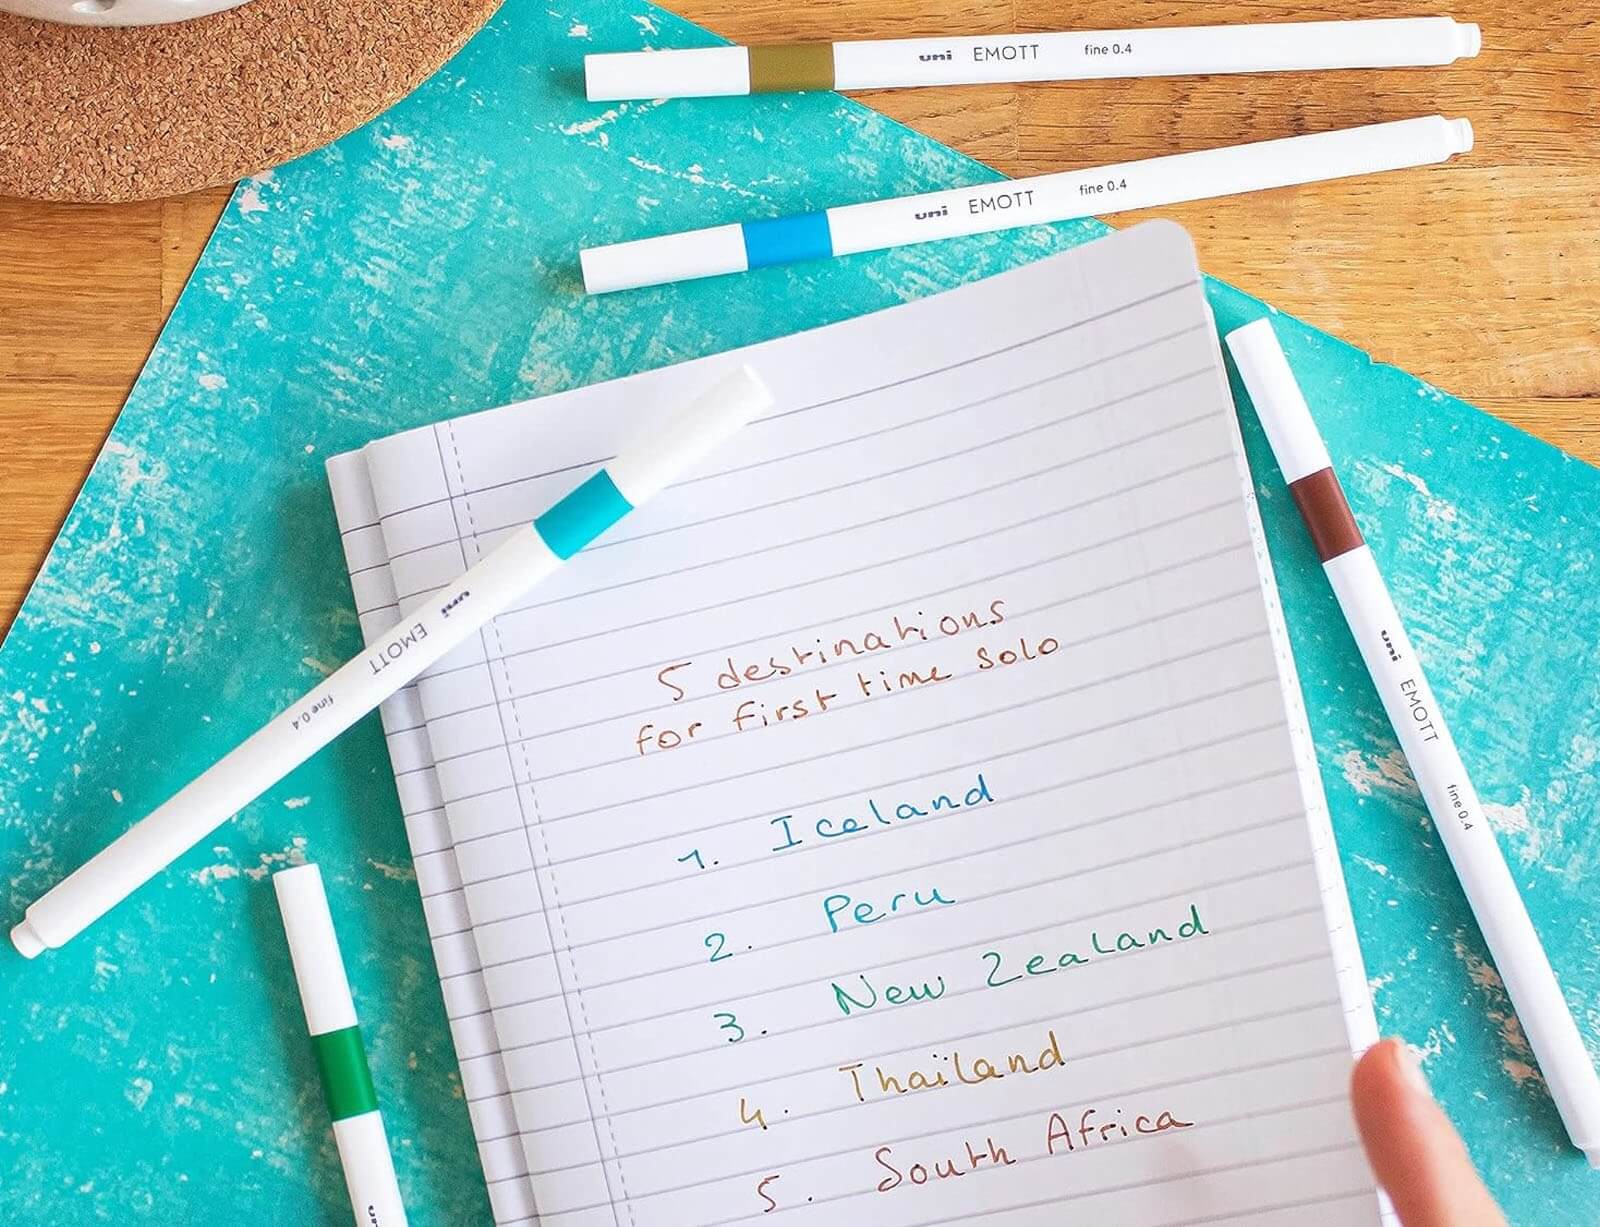 uni EMOTT fine 0.4
uni EMOTT fine 0.4
uni EMOTT fine 0.4
uni EMOTT fine 0.4
uni
5 destinations
for first time solo
1. Iceland
2. Peru
3. New Zealand
4. Thaïland
5. South Africa